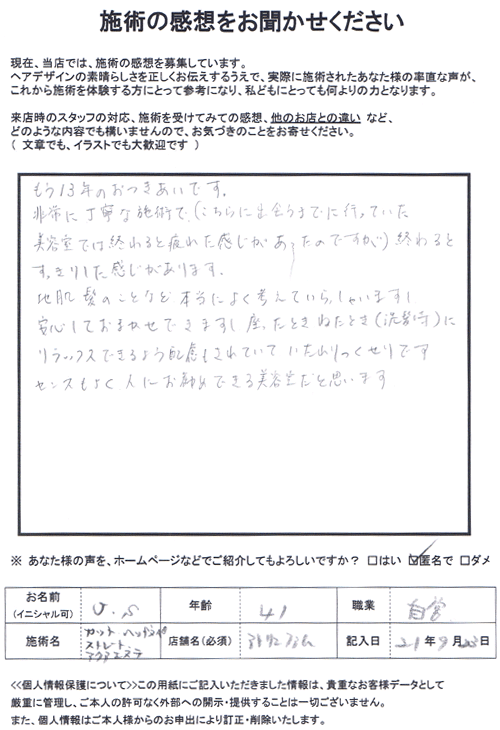 施術の感想をお聞かせください
現在、当店では、施術の感想を募集しています。
ヘアデザインの素晴らしさを正しくお伝えするうえで、実際に施術されたあなた様の率直な声が、
これから施術を体験する方にとって参考になり、私どもにとっても何よりの力となります。
来店時のスタッフの対応、施術を受けてみての感想、他のお店との違い など、
どのような内容でも構いませんので、お気づきのことをお寄せください。
( 文章でも、イラストでも大歓迎です )
もう13年のおつきあいです。
非常に丁寧な施術で、(こちらに出会うまでに行っていた
美容室では終わると疲れた感じがあったのですが)終わると
すっきりした感じがあります。
地肌 髪のことなど 本当によく考えていらっしゃいますし
安心しておまかせできますし 座ったとき ねたとき(洗髪時)に
リラックスできるよう配慮もされていて いたれりつくせりです
センスもよく 人にお勧めできる美容室だと思います
※ あなた様の声を、ホームページなどでご紹介してもよろしいですか? □はい ☑匿名で □ダメ
お名前 (イニシャル可) U.S 年齢 41 職業 自営
施術名 カット ヘッドスパ ストレート アクアエステ 店舗名(必須) 記入日 21年9月23日
<<個人情報保護について>>この用紙にご記入いただきました情報は、貴重なお客様データとして
厳重に管理し、ご本人の許可なく外部への開示・提供することは一切ございません。
また、個人情報はご本人様からのお申出により訂正・削除いたします。